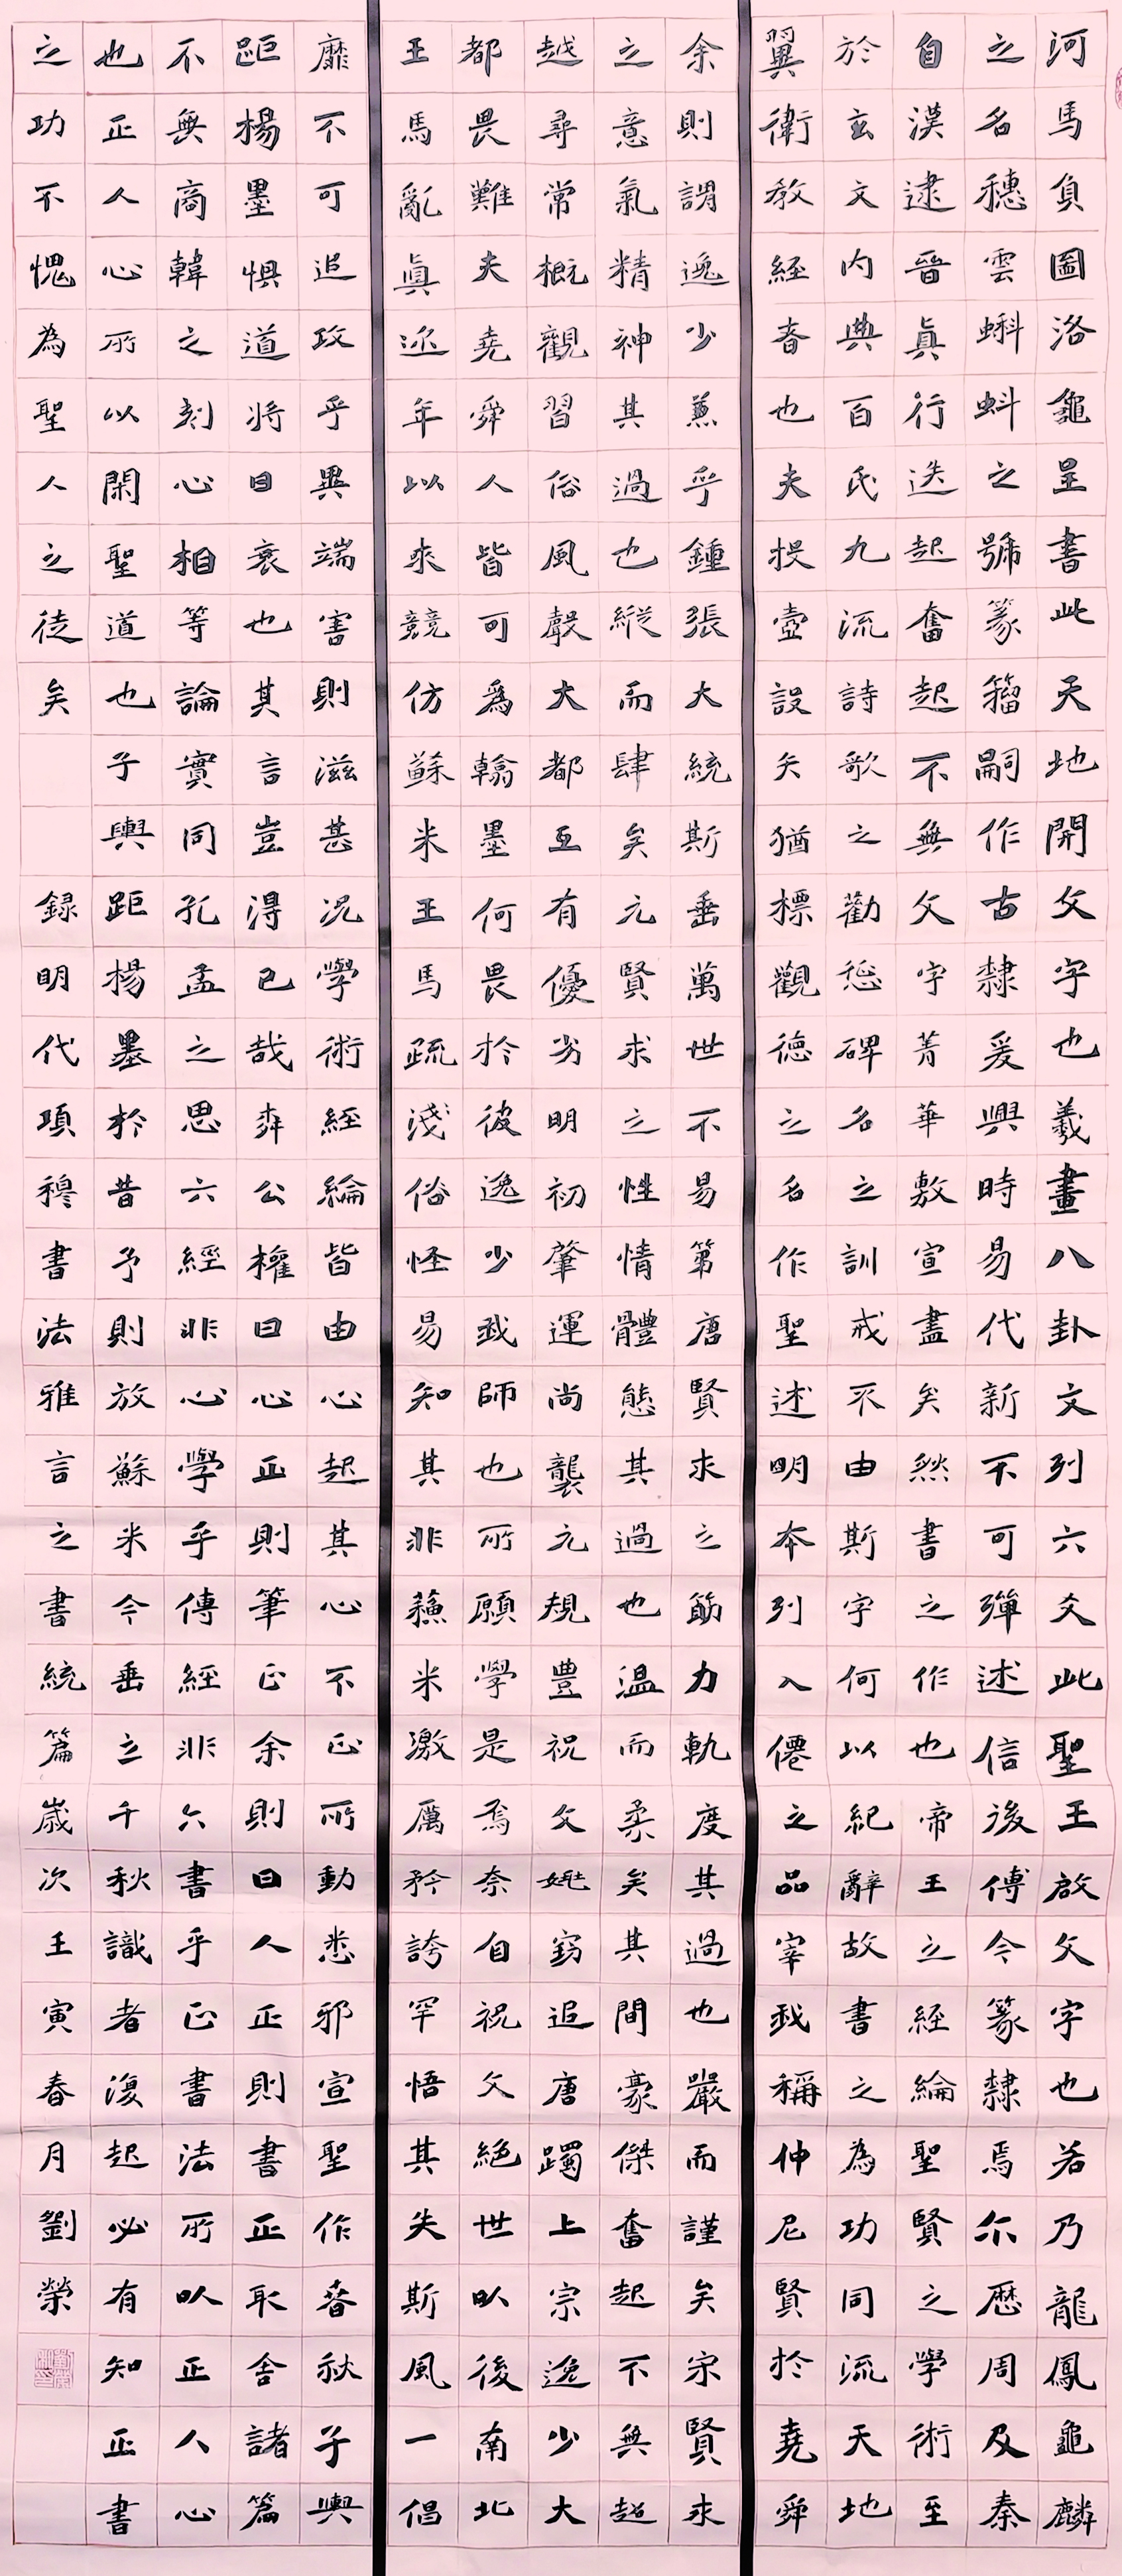 河馬負圖洛龜呈書此天地開文字也羲畫八卦文列六爻此聖王啟文字也若乃龍鳳龜麟
之名穗雲蝌蚪之號篆籀嗣作古隸爰興時易代新不可殫述信後傳今篆隸焉尒歷周及秦
自漢逮晉真行迭起奮起不無文字菁華敷宣盡矣然書之作也帝王之經綸聖賢之學術至
於玄文內典百氏九流詩歌之勸懲碑名之訓戒不由斯字何以紀辭故書之為功同流天地
翼衛教經者也夫投壺設矢猶標觀德之名作聖述明本列入僊之品宰我稱仲尼賢於堯舜
余則謂逸少兼乎鍾張大統斯垂萬世不易第唐賢求之筋力軌度其過也嚴而謹矣宋賢求
之意氣精神其過也縱而肆矣元賢求之性情體態其過也溫而柔矣其間豪傑奮起不無超
越尋常概觀習俗風聲大都互有優劣明初肇運尚襲元規豐祝文姚竊追唐躅上宗逸少大
都畏難夫堯舜人皆可為翰墨何畏於彼逸少我師也所願學是焉奈自祝文絕世以後南北
王馬亂眞迩年以來競仿蘇米王馬疏淺俗怪易知其非蘇米激厲矜誇罕悟其失斯風一倡
靡不可追攻乎異端害則滋甚況學術經綸皆由心起其心不正所動悉邪宣聖作春秋子輿
距楊墨懼道將日衰也其言豈得已哉柳公權曰心正則筆正余則曰人正則書正取舍諸篇
不無商韓之刻心相等論實同孔孟之思六經非心學乎傳經非六書乎正書法所以正人心
也正人心所以閑聖道也子輿距楊墨於昔予則放蘇米今垂之千秋識者復起必有知正書
之功不愧為聖人之徒矣 録明代項穆書法雅言之書統篇歲次壬寅春月劉榮